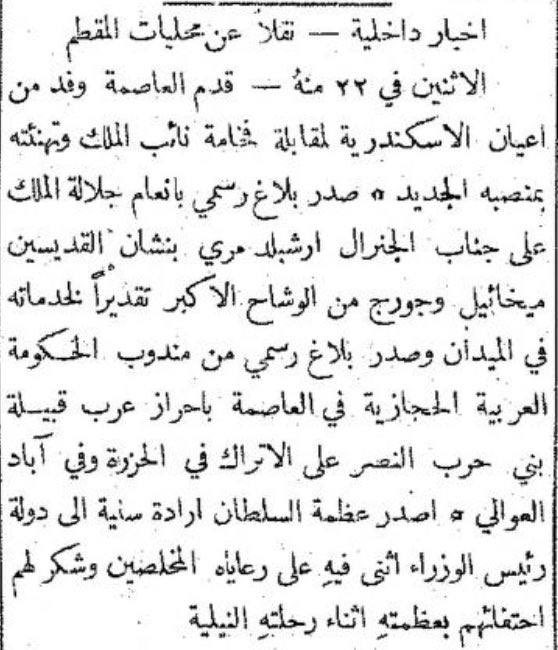 اخبار داخلية — نقلاً عن محليات المقطم
الاثنين في ٢٢ منهُ — قدم العاصمة وفد من
اعيان الاسكندرية لمقابلة فخامة نائب الملك وتهنئته
بمنصبه الجديد ٥ صدر بلاغ رسمي بانعام جلالة الملك
على جناب الجنرال ارشبلد مري بنشان القديسين
ميخائيل وجورج من الوشاح الاكبر تقديراً لخدماته
في الميدان وصدر بلاغ رسمي من مندوب الحكومة
العربية الحجازية في العاصمة باحراز عرب قبيلة
بني حرب النصر على الاتراك في الحزرة وفي آباد
العوالي ٥ اصدر عظمة السلطان ارادة سنية الى دولة
رئيس الوزراء اثنى فيهِ على رعاياه المخلصين وشكر لهم
احتفائهم بعظمتهِ اثناء رحلتهِ النيلية